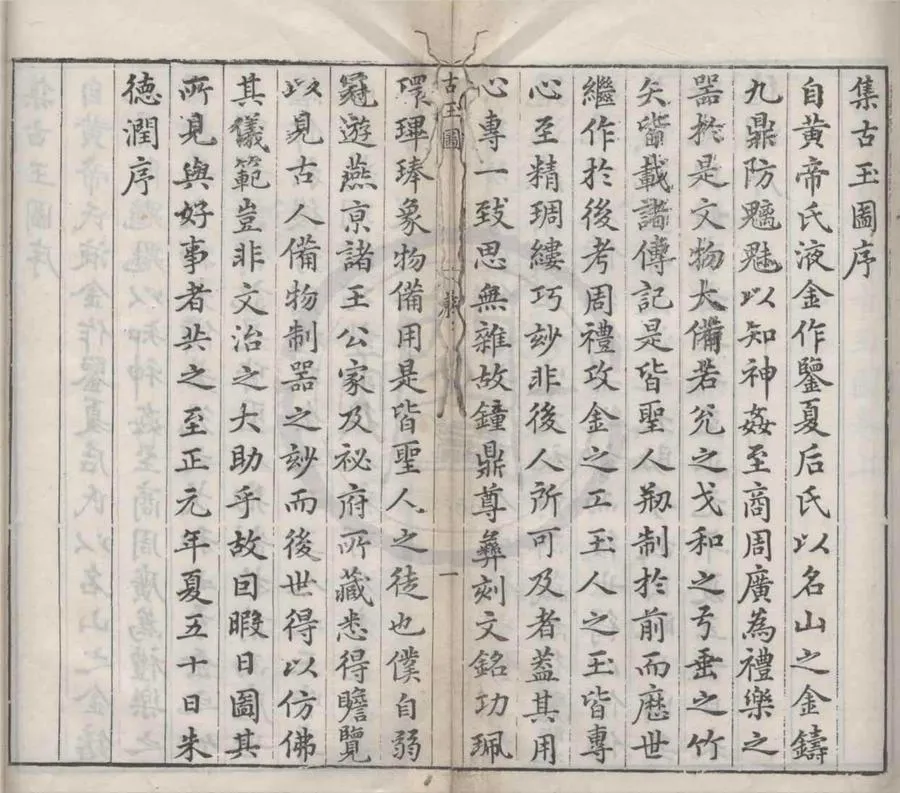 集古玉圖序
自黃帝氏液金作鑒夏后氏以名山之金鑄
九鼎防魑魅以知神姦至商周廣為禮樂之
器扵是文物大備若兊之戈和之弓垂之竹
矢皆載諸傳記是皆聖人刱制於前而歴世
繼作於後考周禮攻金之工玉人之玉皆專
心至精琱縷巧玅非後人所可及者葢其用
心專一致思無雜故鐘鼎尊彝刻文銘功珮
古玉圖
一
環琕琫象物備用是皆聖人之徒也僕自弱
冠遊燕京諸王公家及祕府所藏悉得瞻覽
以見古人備物制器之玅而後世得以仿佛
其儀範豈非文治之大助乎故因暇日圖其
所見與好事者共之至正元年夏五十日朱
德潤序